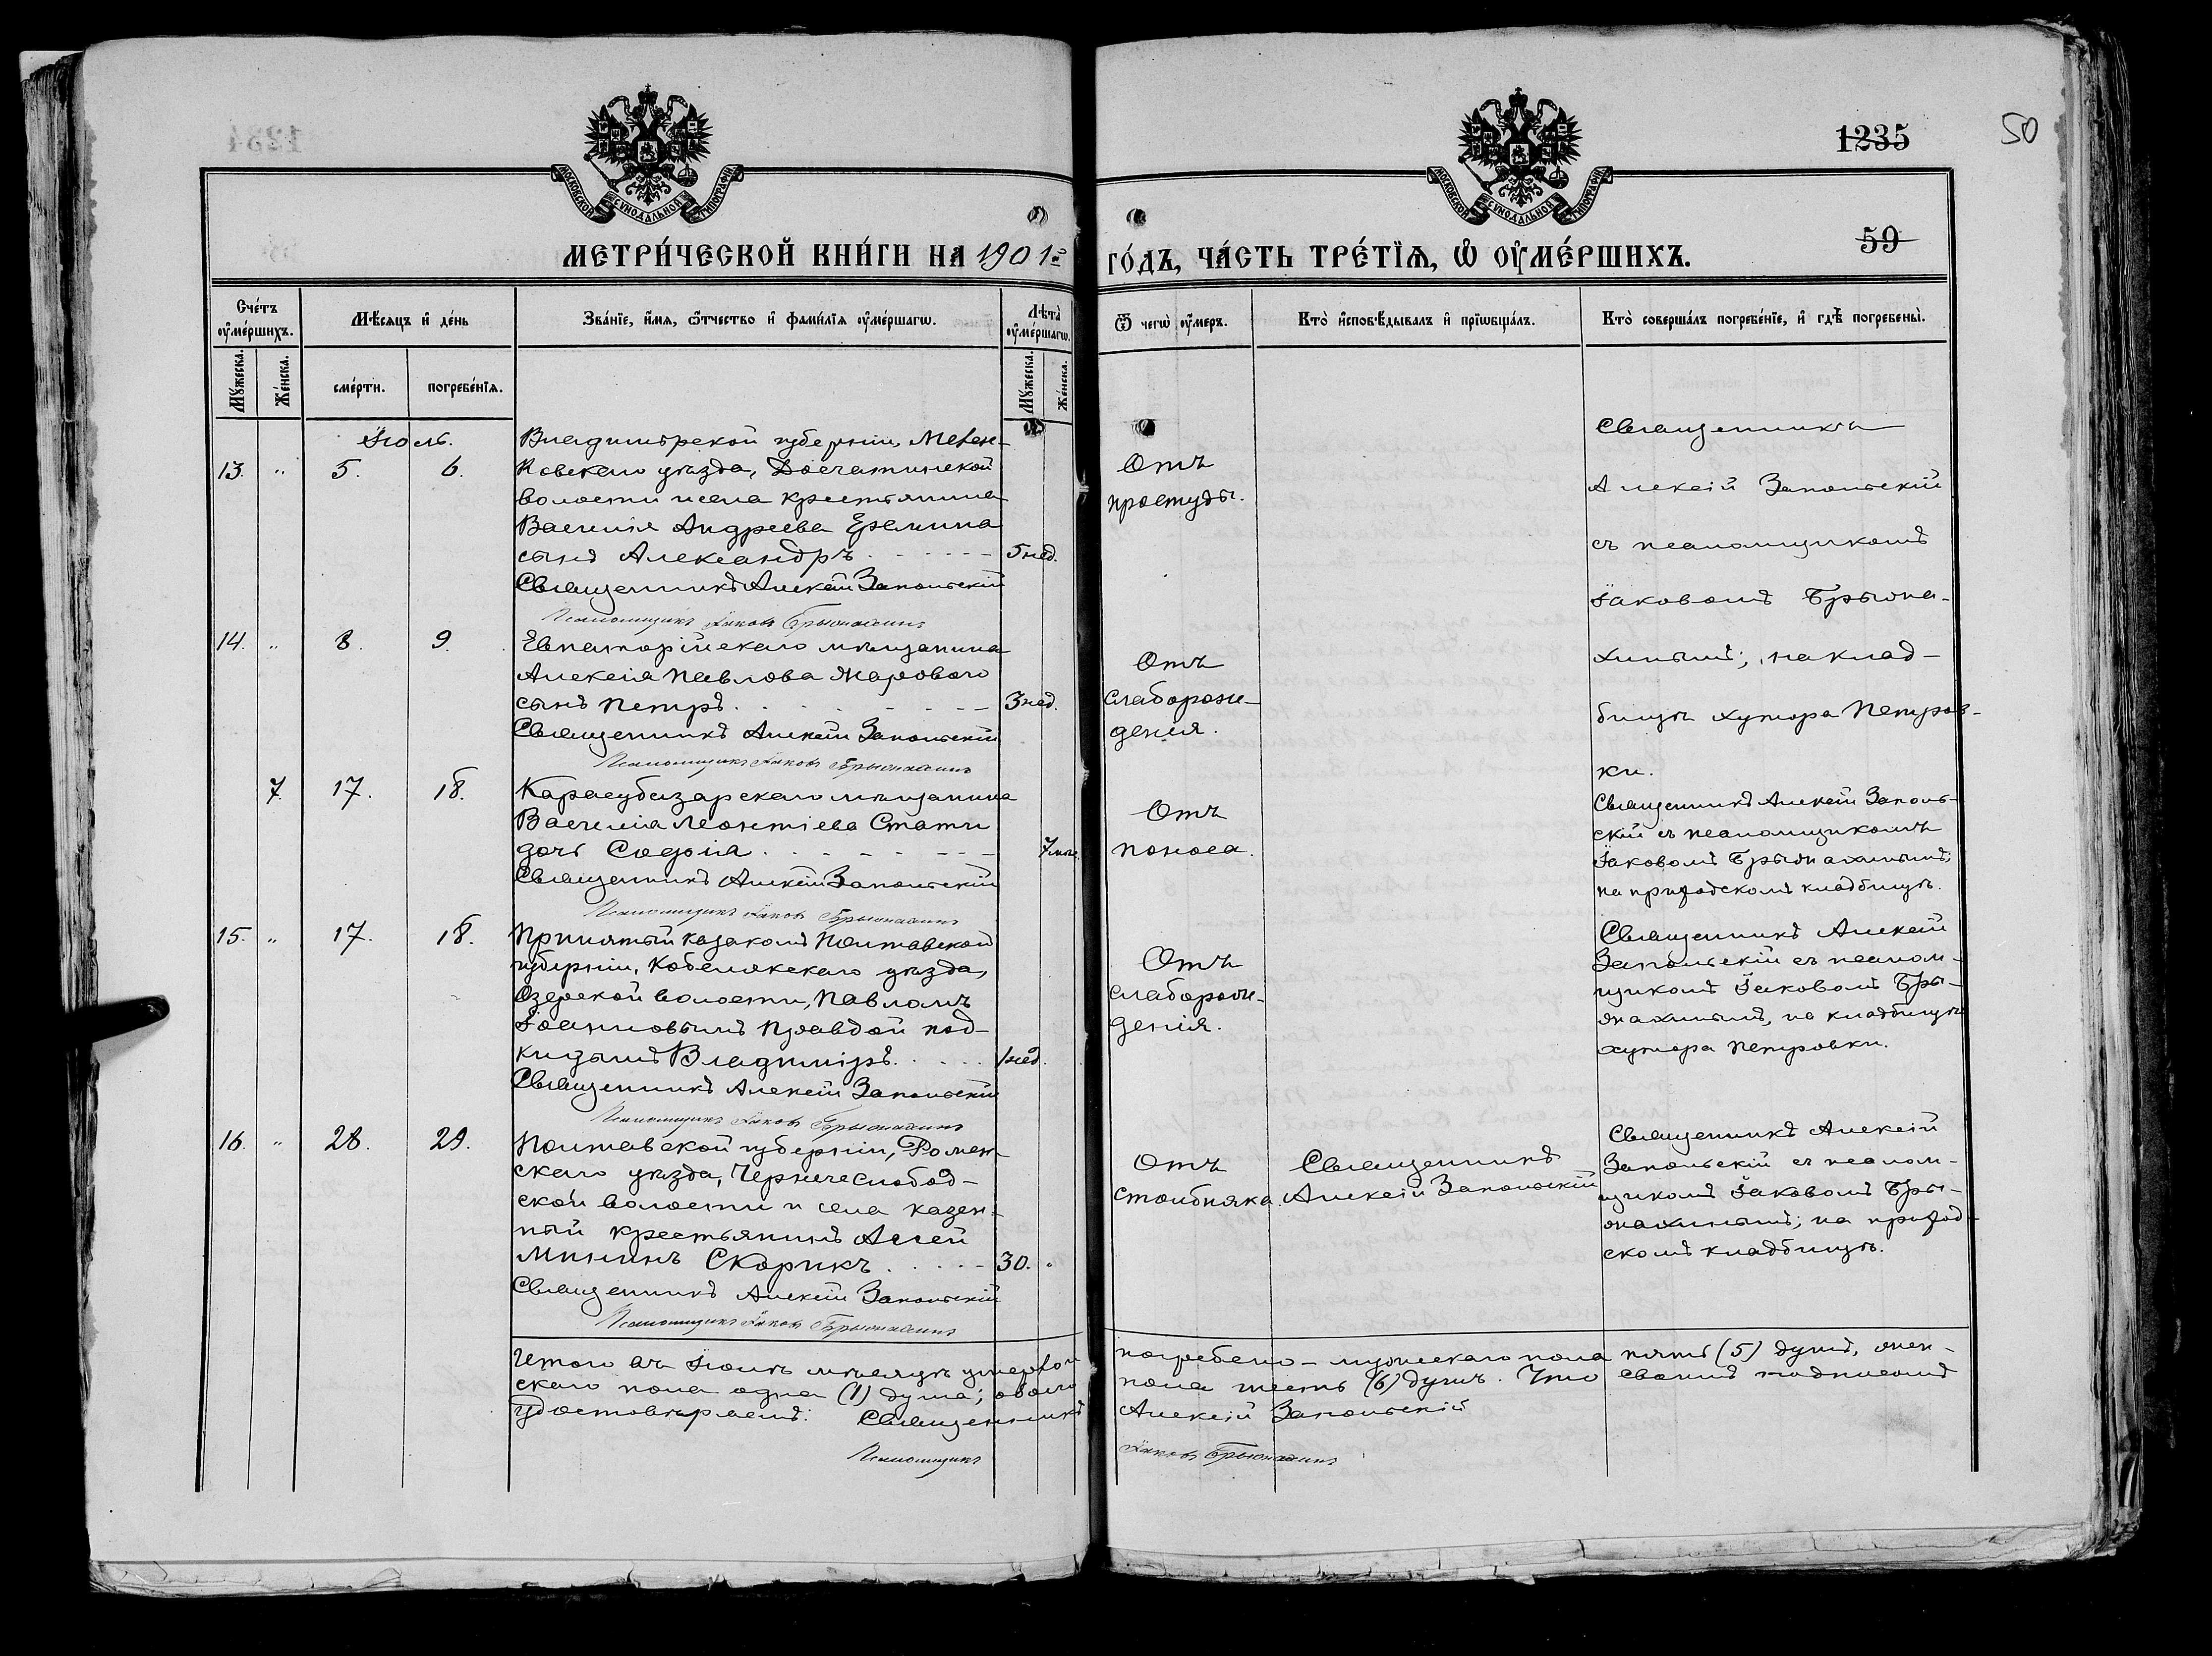 1235
50
МОСКОВСКОЙ СѴНОДАЛЬНОЙ ТИПОГРАФІИ
МОСКОВСКОЙ СѴНОДАЛЬНОЙ ТИПОГРАФІИ
59
МЕТРИ́ЧЕСКОЙ КНИ́ГИ НА 1901й
ГО́ДЪ, ЧА́СТЬ ТРЕ́ТЇѦ, Ѡ҆ ОУ҆МЕ́РШИХЪ.
Сче́тъ оу҆ме́ршихъ.
Мѣ́сяцъ и҆ де́нь
Зва́нїе, и҆́мя, ѻ҆́тчество и҆ фамилїя оу҆ме́ршагѡ.
Лѣта̀ оу҆ме́ршагѡ.
Ѿ чегѡ̀ оу҆́меръ.
Кто̀ и҆сповѣ́дывалъ и҆ прїѡбща́лъ.
Кто̀ соверша́лъ погребе́нїе, и҆ гдѣ̀ погребены̀.
Мꙋ́жеска.
Же́нска.
сме́рти.
погребе́нїя.
Мꙋ́жеска.
Же́нска.
Іюль.
13. " 5. 6.
Владимірской губерніи, Мелен-
ковскаго уѣзда, Досчатинской
волости и села крестьянина
Василія Андреева Еремина
сынъ Александръ. - - - - - 5 нед.
Священникъ Алексій Запольскій
Псаломщикъ Іаковъ Брыонахинъ
Отъ
простуды.
Священникъ
Алексій Запольскій
съ псаломщикомъ
Іаковомъ Брыона-
хинымъ; на клад-
бищѣ хутора Петров-
ки.
14. " 8. 9.
Евпаторійскаго мѣщанина
Алексія Павлова Жарового
сынъ Петръ. - - - - - 3 нед.
Священникъ Алексій Запольскій
Псаломщикъ Іаковъ Брыонахинъ
Отъ
слаборож-
денія.
7. 17. 18.
Карасубазарскаго мѣщанина
Василія Леонтіева Стати
дочь Софія. - - - - - 7 мѣс.
Священникъ Алексій Запольскій
Псаломщикъ Іаковъ Брыонахинъ
Отъ
поноса.
Священникъ Алексій Заполь-
скій съ псаломщикомъ
Іаковомъ Брыонахинымъ,
на приходскомъ кладбищѣ.
15. " 17. 18.
Принятый казакомъ Полтавской
губерніи, Кобелякскаго уѣзда,
Озерской волости, Павломъ
Іоанновымъ Правдой под-
кидышъ Владиміръ. . . . . 1 нед.
Священникъ Алексій Запольскій
Псаломщикъ Іаковъ Брыонахинъ
Отъ
слаборож-
денія.
Священникъ Алексій
Запольскій съ псалом-
щикомъ Іаковомъ Бры-
онахинымъ, на кладбищѣ
хутора Петровки.
16. " 28. 29.
Полтавской губерніи, Ромен-
скаго уѣзда, Чернечеслобод-
ской волости и села казен-
ный крестьянинъ
Мининъ Скорикъ. . . . . - 30. "
Священникъ Алексій Запольскій
Псаломщикъ Іаковъ Брыонахинъ
Отъ
столбняка.
Священникъ
Алексій Запольскій
Священникъ Алексій
Запольскій съ псалом-
щикомъ Іаковомъ Бры-
онахинымъ; на приход-
скомъ кладбищѣ.
Итого въ Іюлѣ мѣсяцѣ умерло и погребено - мужескаго пола пять (5) душъ, жен-
скаго пола одна (1) душа; обоего пола шесть (6) душъ. Что своимъ подписомъ
удостовѣряемъ: Священникъ Алексій Запольскій
Псаломщикъ Іаковъ Брыонахинъ